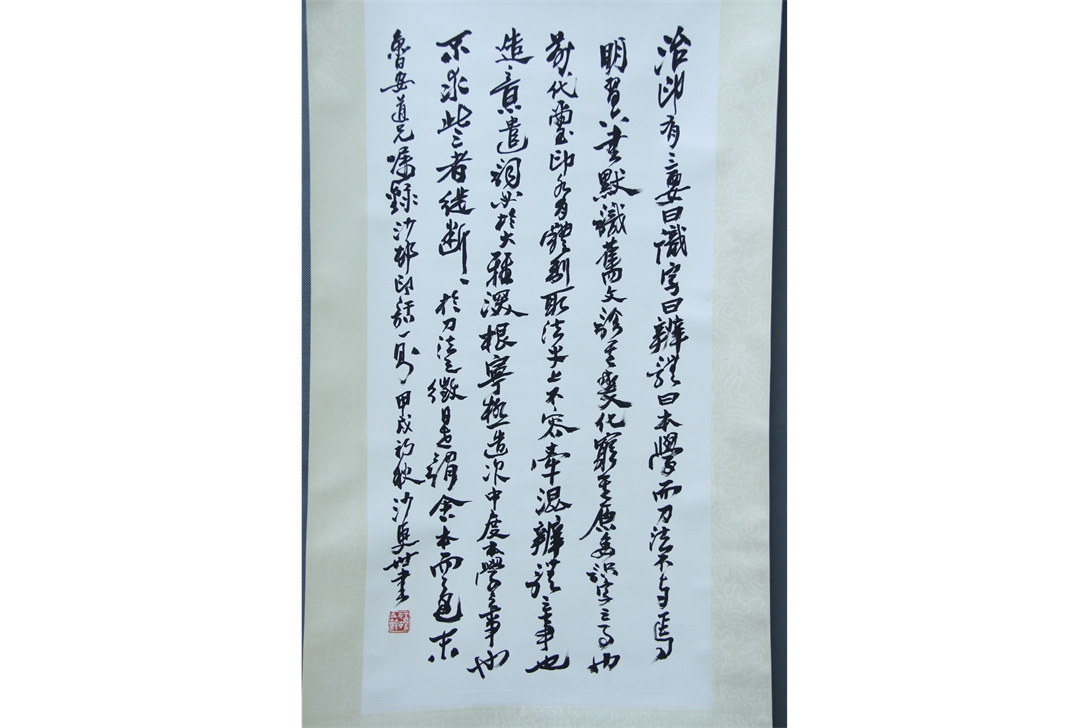 治印有三要曰識字曰辨體曰本學而刀法不与焉
明習六書默識舊文詠其變化窮其原委識字之事也
前代璽印各有體製取法乎上不容牽混辨體之事也
造意遣詞必於大雅深根寧極造次中度本學之事也
不求此三者徒斷斷於刀法之微是謂舍本而逐末
魯安道兄囑錄沙邨印話一則甲戌初秋沙更世書